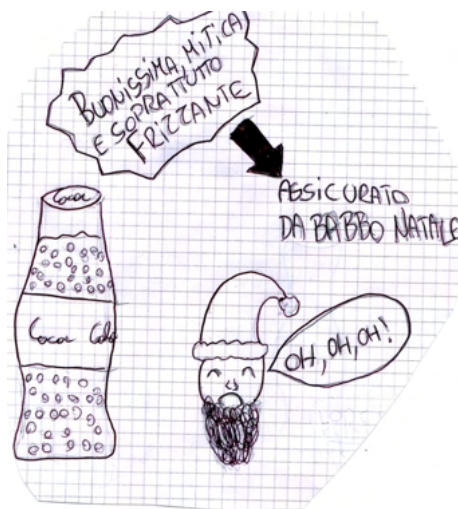 BUONISSIMA, MITICA
E SOPRATTUTTO
FRIZZANTE
ASSICURATO
DA BABBO NATALE
Coca
Coca Cola
OH, OH, OH!